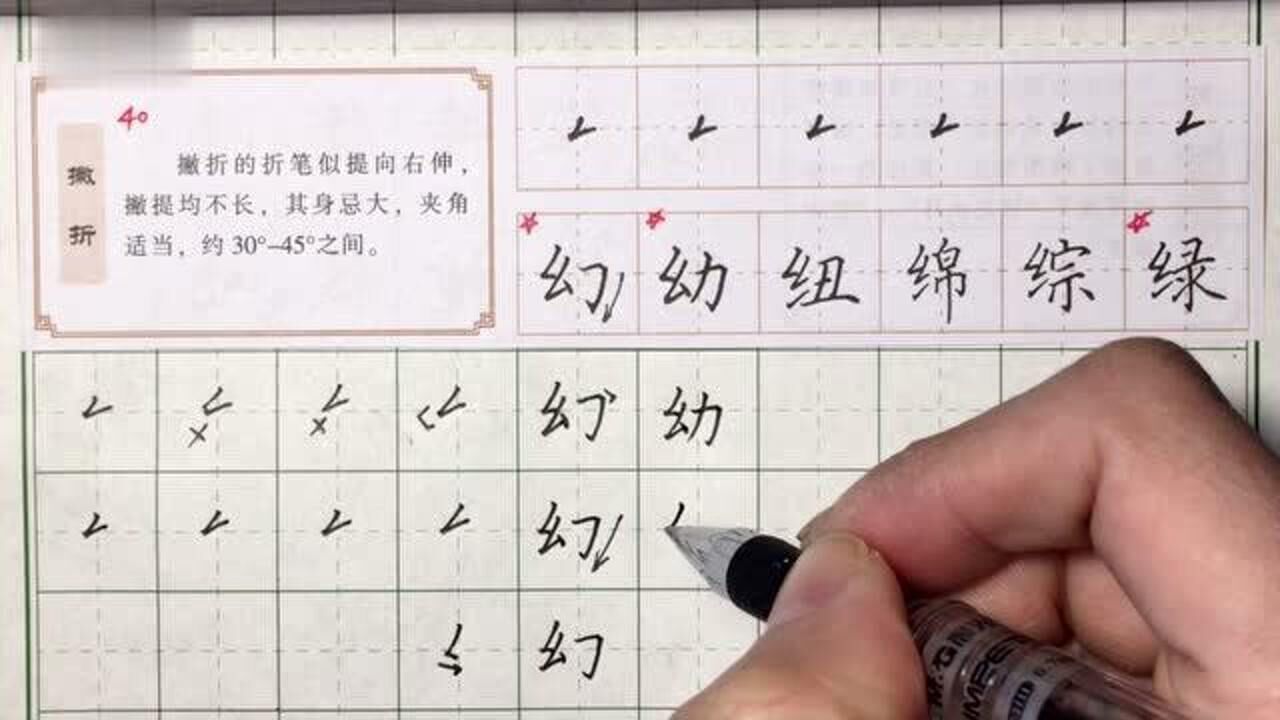 40
撇折
撇折的折笔似提向右伸，
撇提均不长，其身忌大，夹角
适当，约30°–45°之间。
幻 幼 纽 绵 综 绿
幻 幼
幻
幻